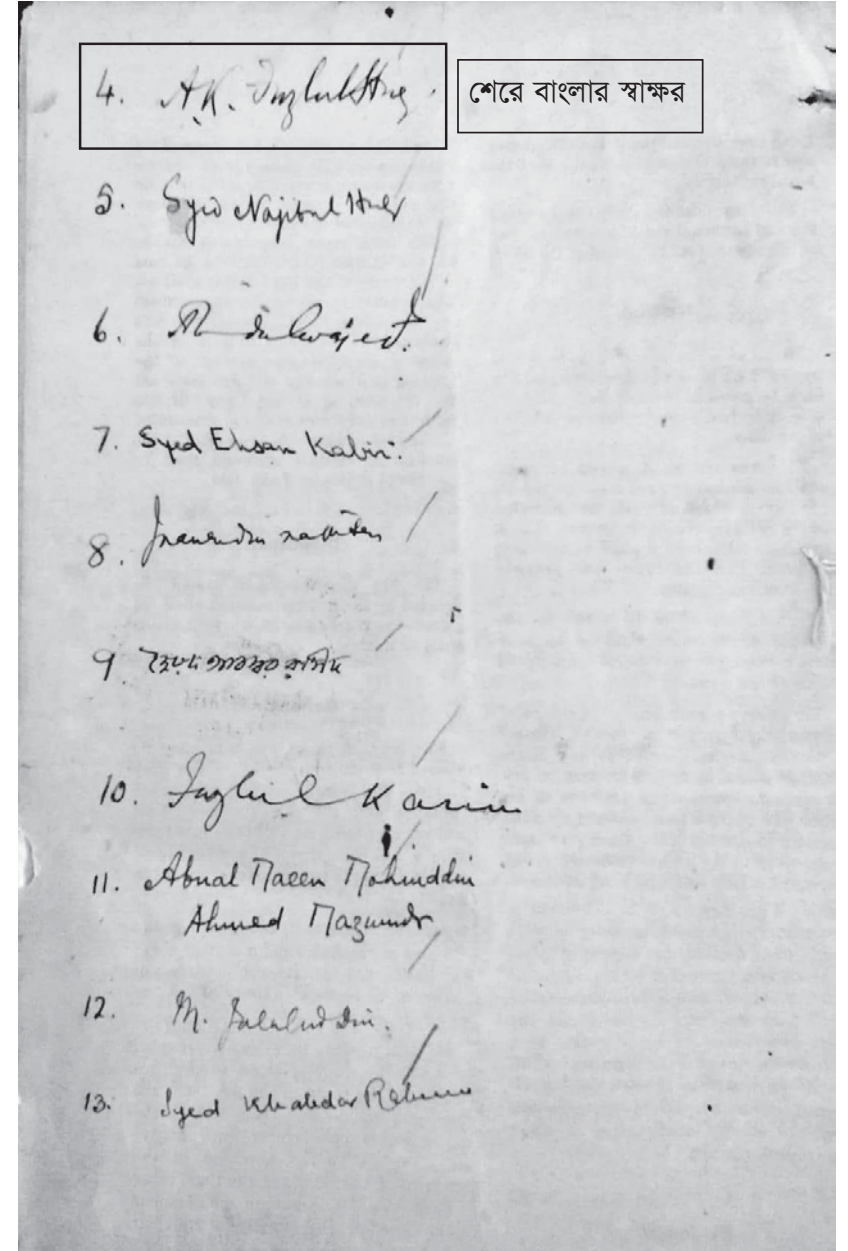 4. A.K. Fazlul Huq.
শেরে বাংলার স্বাক্ষর
5. Syed Najibul Huq
6.
7. Syed Ehsan Kabir.
8.
9
10. Fazlul Karim
11. Abual Maeen Mohiuddin
Ahmed Mazumdr
12. M. Jalaluddin.
13. Syed Khaledar Rahman